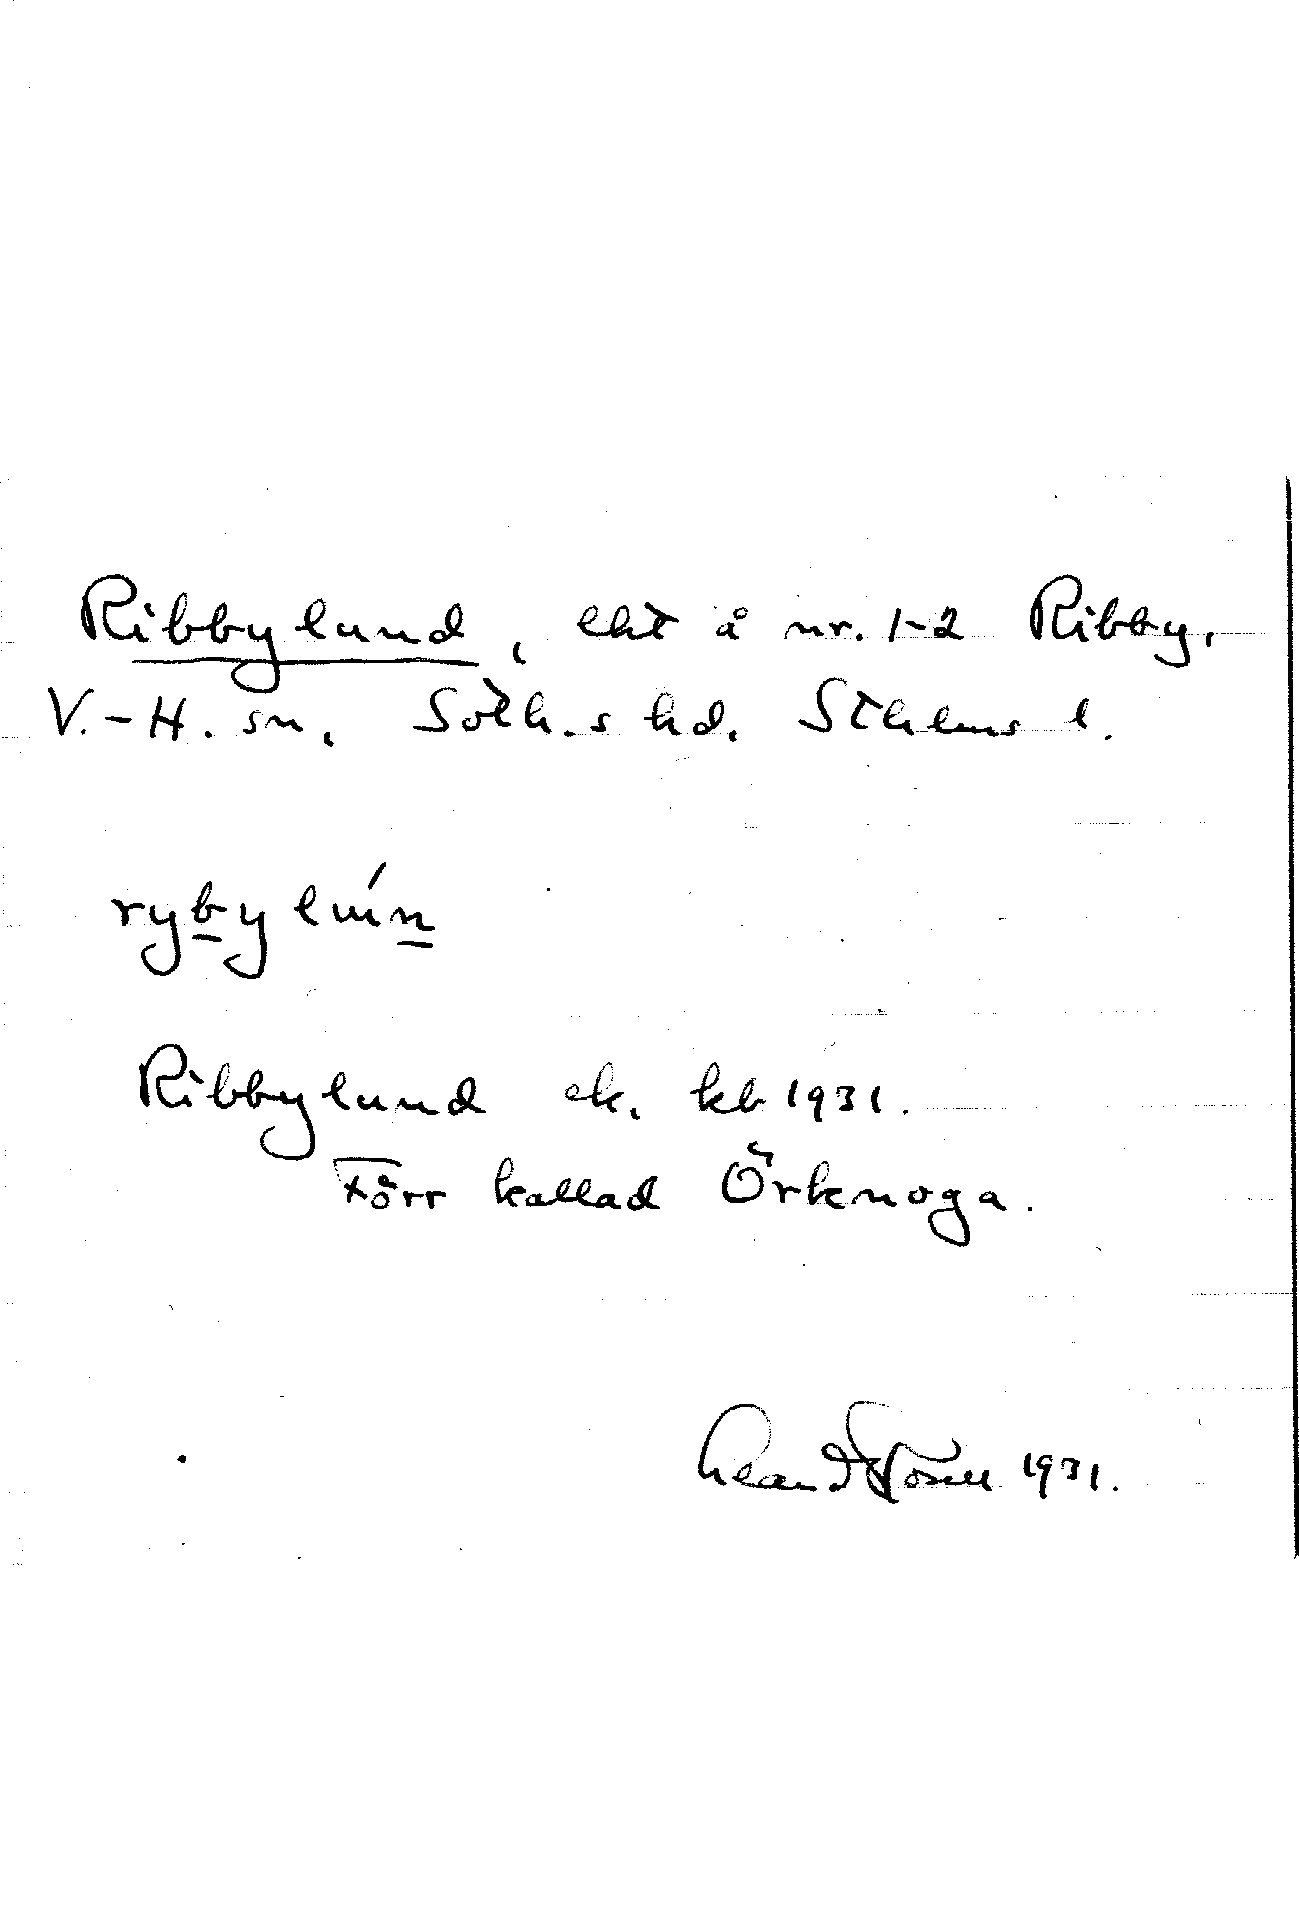 Ribbylund, lht å nr. 1-2 Ribby.
V.-H. sn. Soth.s hd. Sthlms l.
rybylun
Ribbylund ek. kb 1931.
Förr kallad Örknoga.
1931.